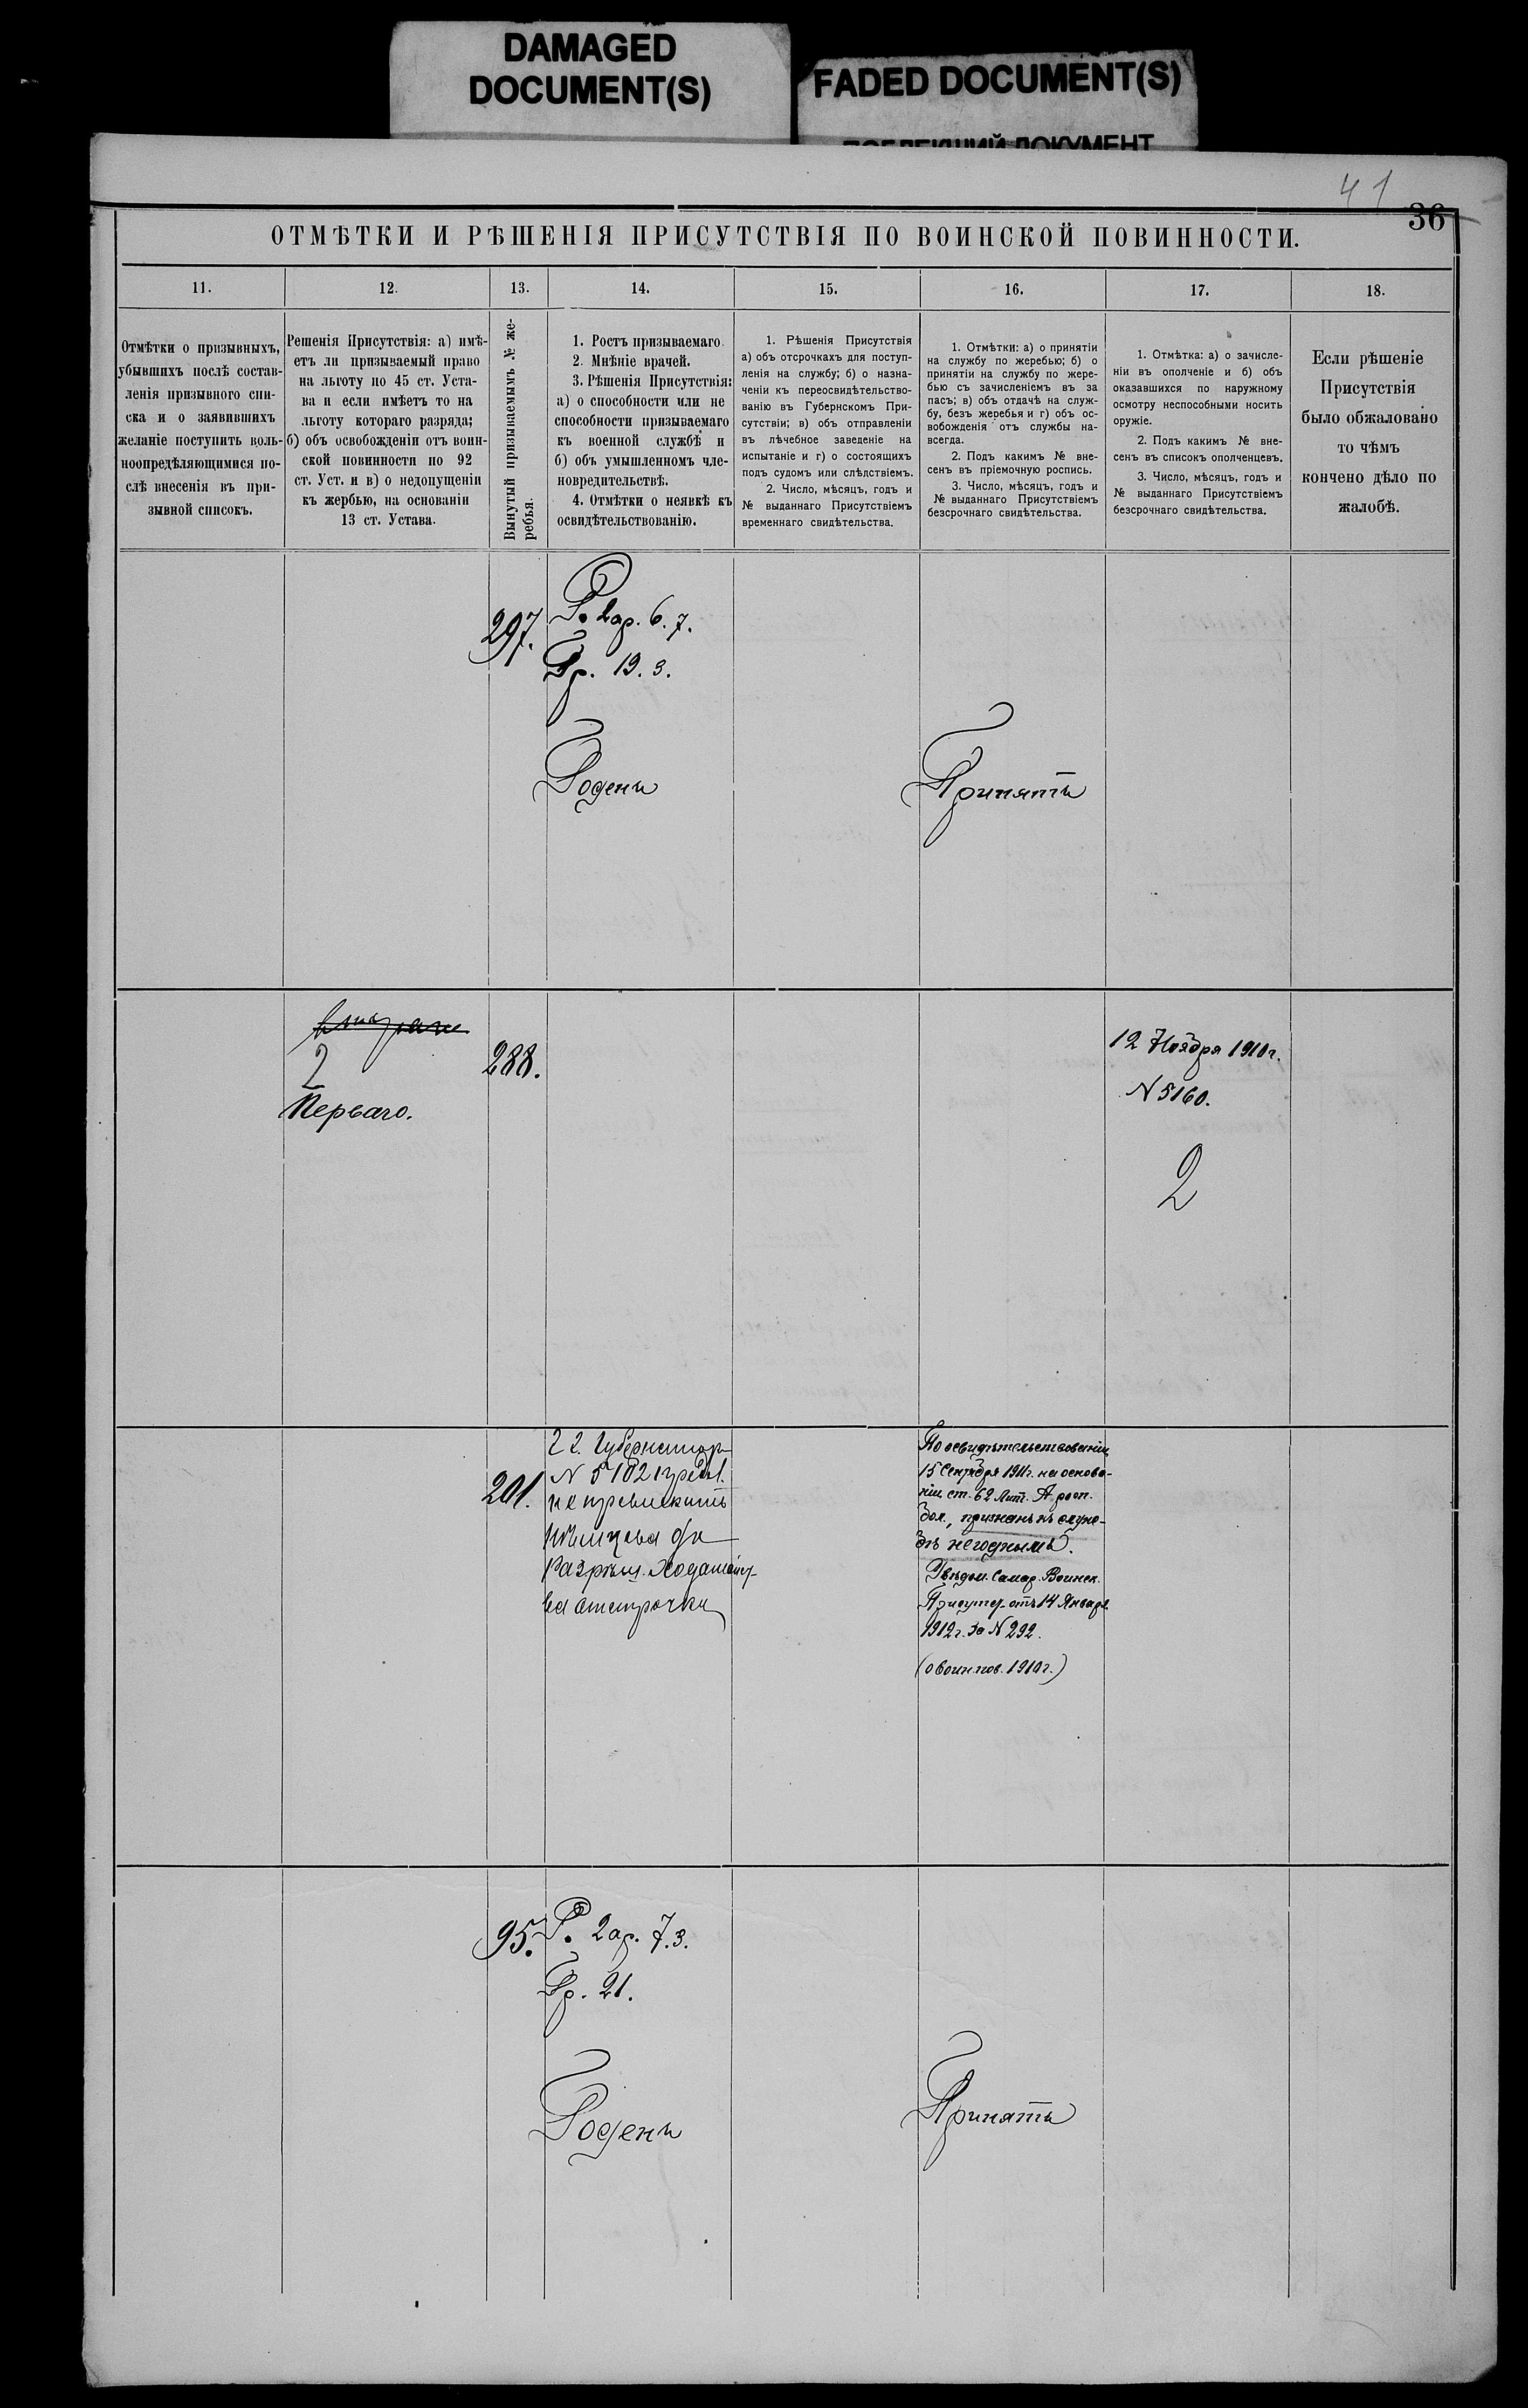 DAMAGED
DOCUMENT(S)
FADED DOCUMENT(S)
ПОБЛЕКШИЙ ДОКУМЕНТ
41
36
ОТМѢТКИ И РѢШЕНІЯ ПРИСУТСТВІЯ ПО ВОИНСКОЙ ПОВИННОСТИ.
11.
12.
13.
14.
15.
16.
17.
18.
Отмѣтки о призывныхъ,
убывшихъ послѣ состав-
ленія призывного спи-
ска и о заявившихъ
желаніе поступить воль-
ноопредѣляющимися по-
слѣ внесенія въ при-
зывной списокъ.
Решенія Присутствія: а) имѣ-
етъ ли призываемый право
на льготу по 45 ст. Уста-
ва и если имѣетъ то на
льготу котораго разряда;
б) объ освобожденіи отъ воин-
ской повинности по 92
ст. Уст. и в) о недопущеніи
къ жербью, на основаніи
13 ст. Устава.
Вынутый призываемымъ № же-
ребья.
1. Ростъ призываемаго.
2. Мнѣніе врачей.
3. Рѣшенія Присутствія:
а) о способности или не
способности призываемаго
къ военной службѣ и
б) объ умышленномъ чле-
новредительствѣ.
4. Отмѣтки о неявкѣ къ
освидѣтельствованію.
1. Рѣшенія Присутствія
а) объ отсрочкахъ для поступ-
ленія на службу; б) о назна-
ченіи къ переосвидѣтельство-
ванію въ Губернскомъ При-
сутствіи; в) объ отправленіи
въ лѣчебное заведеніе на
испытаніе и г) о состоящихъ
подъ судомъ или слѣдствіемъ.
2. Число, мѣсяцъ, годъ и
№ выданнаго Присутствіемъ
временнаго свидѣтельства.
1. Отмѣтки: а) о принятіи
на службу по жеребью; б) о
принятіи на службу по жере-
бью съ зачисленіемъ въ за
пасъ; в) объ отдачѣ на служ-
бу, безъ жеребья и г) объ ос-
вобожденія отъ службы на-
всегда.
2. Подъ какимъ № вне-
сенъ въ пріемочную роспись.
3. Число, мѣсяцъ, годъ и
№ выданнаго Присутствіемъ
безсрочнаго свидѣтельства.
1. Отмѣтка: а) о зачисле-
ніи въ ополченіе и б) объ
оказавшихся по наружному
осмотру неспособными носить
оружіе.
2. Подъ какимъ № вне-
сенъ въ списокъ ополченцевъ.
3. Число, мѣсяцъ, годъ и
№ выданнаго Присутствіемъ
безсрочнаго свидѣтельства.
Если рѣшеніе
Присутствія
было обжаловано
то чѣмъ
кончено дѣло по
жалобѣ.
297.
Р. 2ар. 6. 7.
Гр. 19. 3.
Годенъ
Принятъ
2
Перваго.
288.
12 Ноября 1910г.
N 5160.
2
201.
22. Губернатор
N 5102
не
Разрѣш. Ходатайст-
ва отсрочки
По освидѣтельствованіи
15 Сентября 1911г. на основа-
ніи ст. 62 Лит. А росп.
бол., признанъ къ служ-
бѣ негоднымъ.
Увѣдом. Самар. Воинск.
Присутст. отъ 14 Января
1912г. за N 292.
(о воин. пов. 1910г.)
95.
Р. 2ар. 7. 3.
Гр. 21.
Годенъ
Принятъ